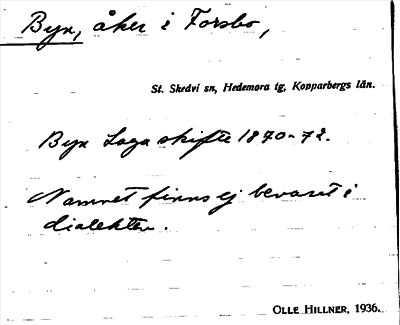 Byn, åker i Forsbo,
St. Skedvi sn, Hedemora tg, Kopparbergs län.
Byn Laga skifte 1870-72.
Namnet finns ej bevarat i
dialekten.
OLLE HILLNER, 1936.